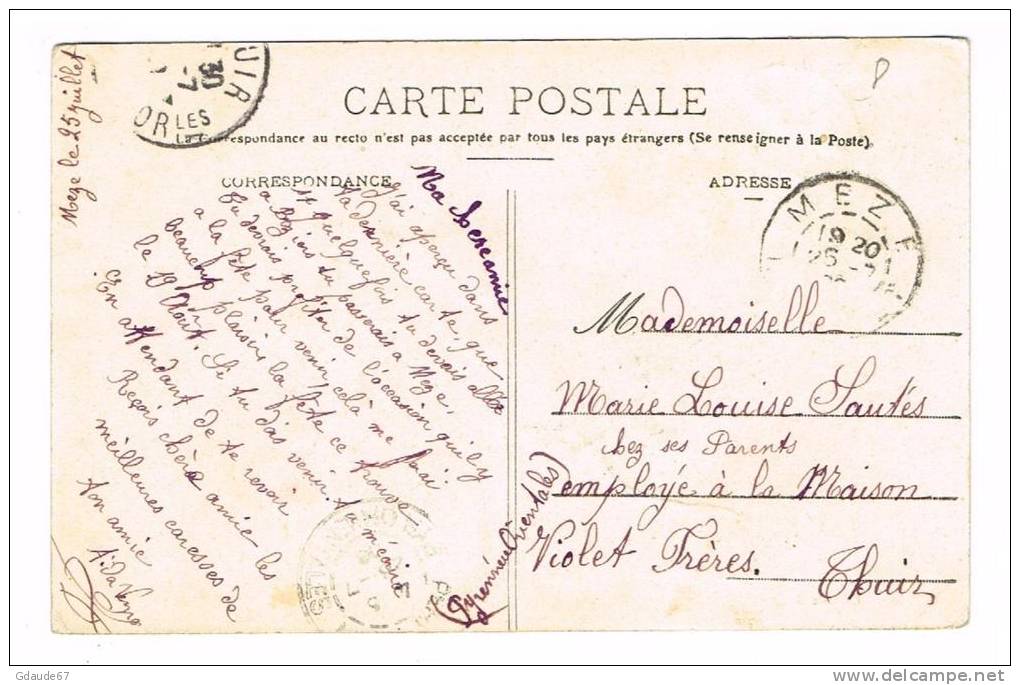 Meze le 25 juillet
CARTE POSTALE
La Correspondance au recto n'est pas acceptée par tous les pays étrangers (Se renseigner à la Poste).
CORRESPONDANCE
ADRESSE
Ma chere amie
J'ai aperçu dans
ta dernière carte, que
si quelquefois tu devais aller
a Beziers tu passerais a Meze,
tu devrais profiter de l'occasion qu'il y
a la fête pour venir, celà me fairai
beaucoup plaisir la fête ce trouve
le 19 Août. Si tu dois venir tu m'écrira
En attendant de te revoir
Reçois chère amie les
meilleures caresses de
ton amie
Mademoiselle
Marie Louise Sautés
chez ses Parents
employé à la Maison
Violet Frères. Thuir
(Pyrénnées Orientales)
MEZE
19 20
UIR
30
OR LES
Gdaude67
www.delcampe.net